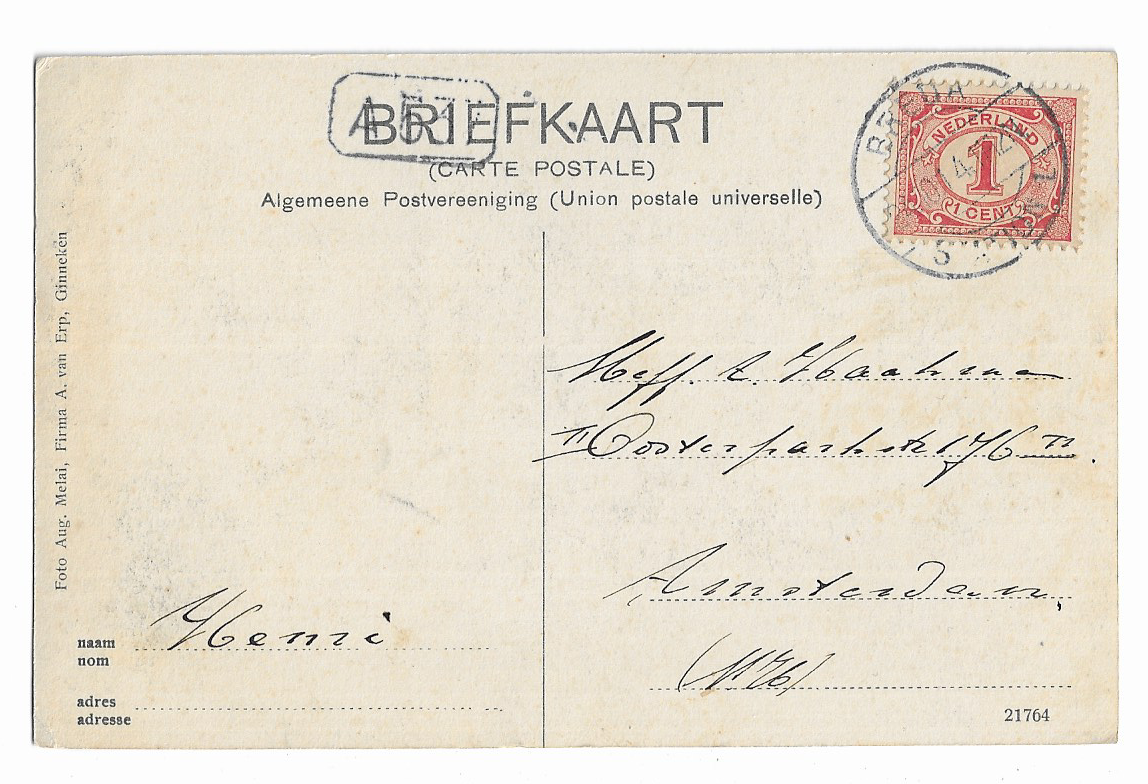 BRIEFKAART
(CARTE POSTALE)
Algemeene Postvereeniging (Union postale universelle)
BREDA
NEDERLAND
1
1 CENT
Foto Aug. Melai, Firma A. van Erp, Ginneken
Mejf. A. Haahma
II Oosterparkstr 176 II.
Amsterdam.
(N H)
naam Henri
nom
adres
adresse
21764